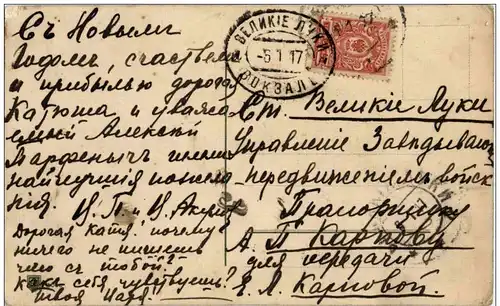 Съ Новымъ
Годомъ, счастьемъ
и прибылью дорогая
Катюша и уважае
мый Алексѣй
Парфенычъ шлемъ
наилучшія пожела
нія.
Дорогая Катя! почему
ничего не пишешь
чего съ тобой?
Какъ себя чувствуешь?
Твоя
ВЕЛИКІЕ ЛУКИ
-5 1 17
ВОКЗАЛЪ
Ст. Великіе Луки
Управленіе Завѣдывающ.
передвиженіемъ войск
Прапорщику
А. П. Карпову
для передачи
Е. Л. Карповой.